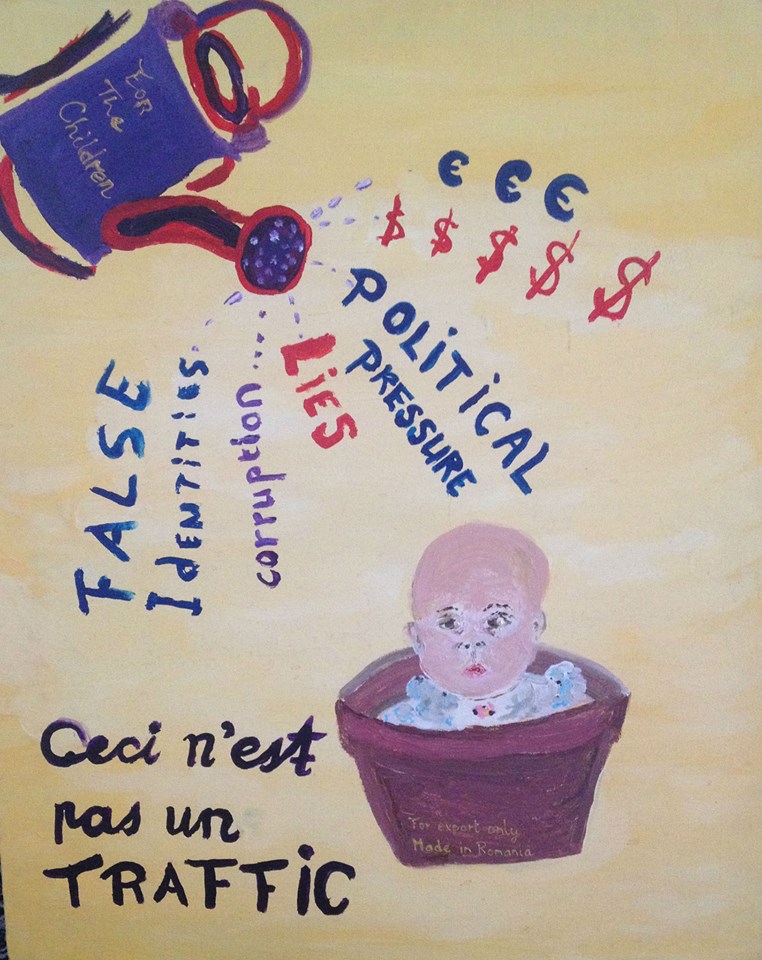 For
The
Children
€ € €
$ $ $ $ $
POLITICAL
PRESSURE
LiES
corruption....
FALSE
IdENTiTiES
Ceci n'est
pas un
TRAFFiC
For export only
Made in Romania